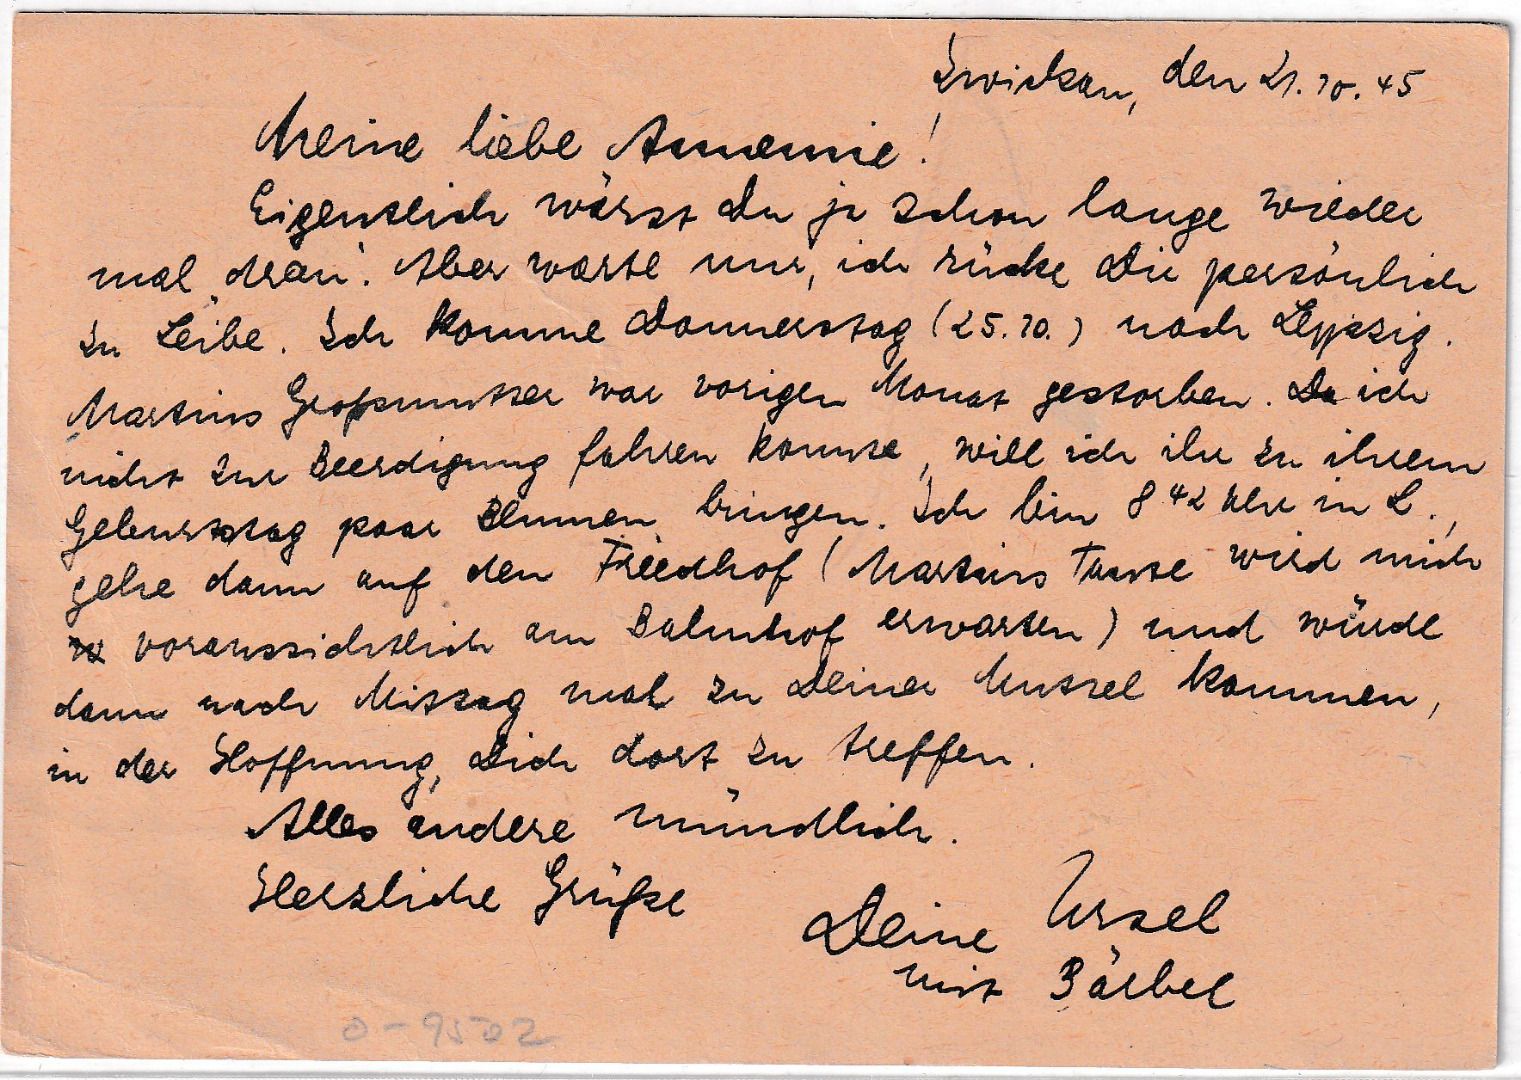 Zwickau, den 21.10.45
Meine liebe Annemie!
Eigentlich wärst Du ja schon lange wieder
mal „dran". Aber warte nur, ich rücke Dir persönlich
zu Leibe. Ich komme Donnerstag (25.10.) nach Leipzig.
Martins Großmutter war vorigen Monat gestorben. Da ich
nicht zur Beerdigung fahren konnte, will ich ihr zu ihrem
Geburtstag paar Blumen bringen. Ich bin 8 42 Uhr in L.,
gehe dann auf den Friedhof (Martins Tante wird mich
voraussichtlich am Bahnhof erwarten) und würde
dann nach Mittag mal zu Deiner Muttel kommen,
in der Hoffnung, Dich dort zu treffen.
Alles andere mündlich.
Herzliche Grüße
Deine Ursel
mit Bärbel
0-9502